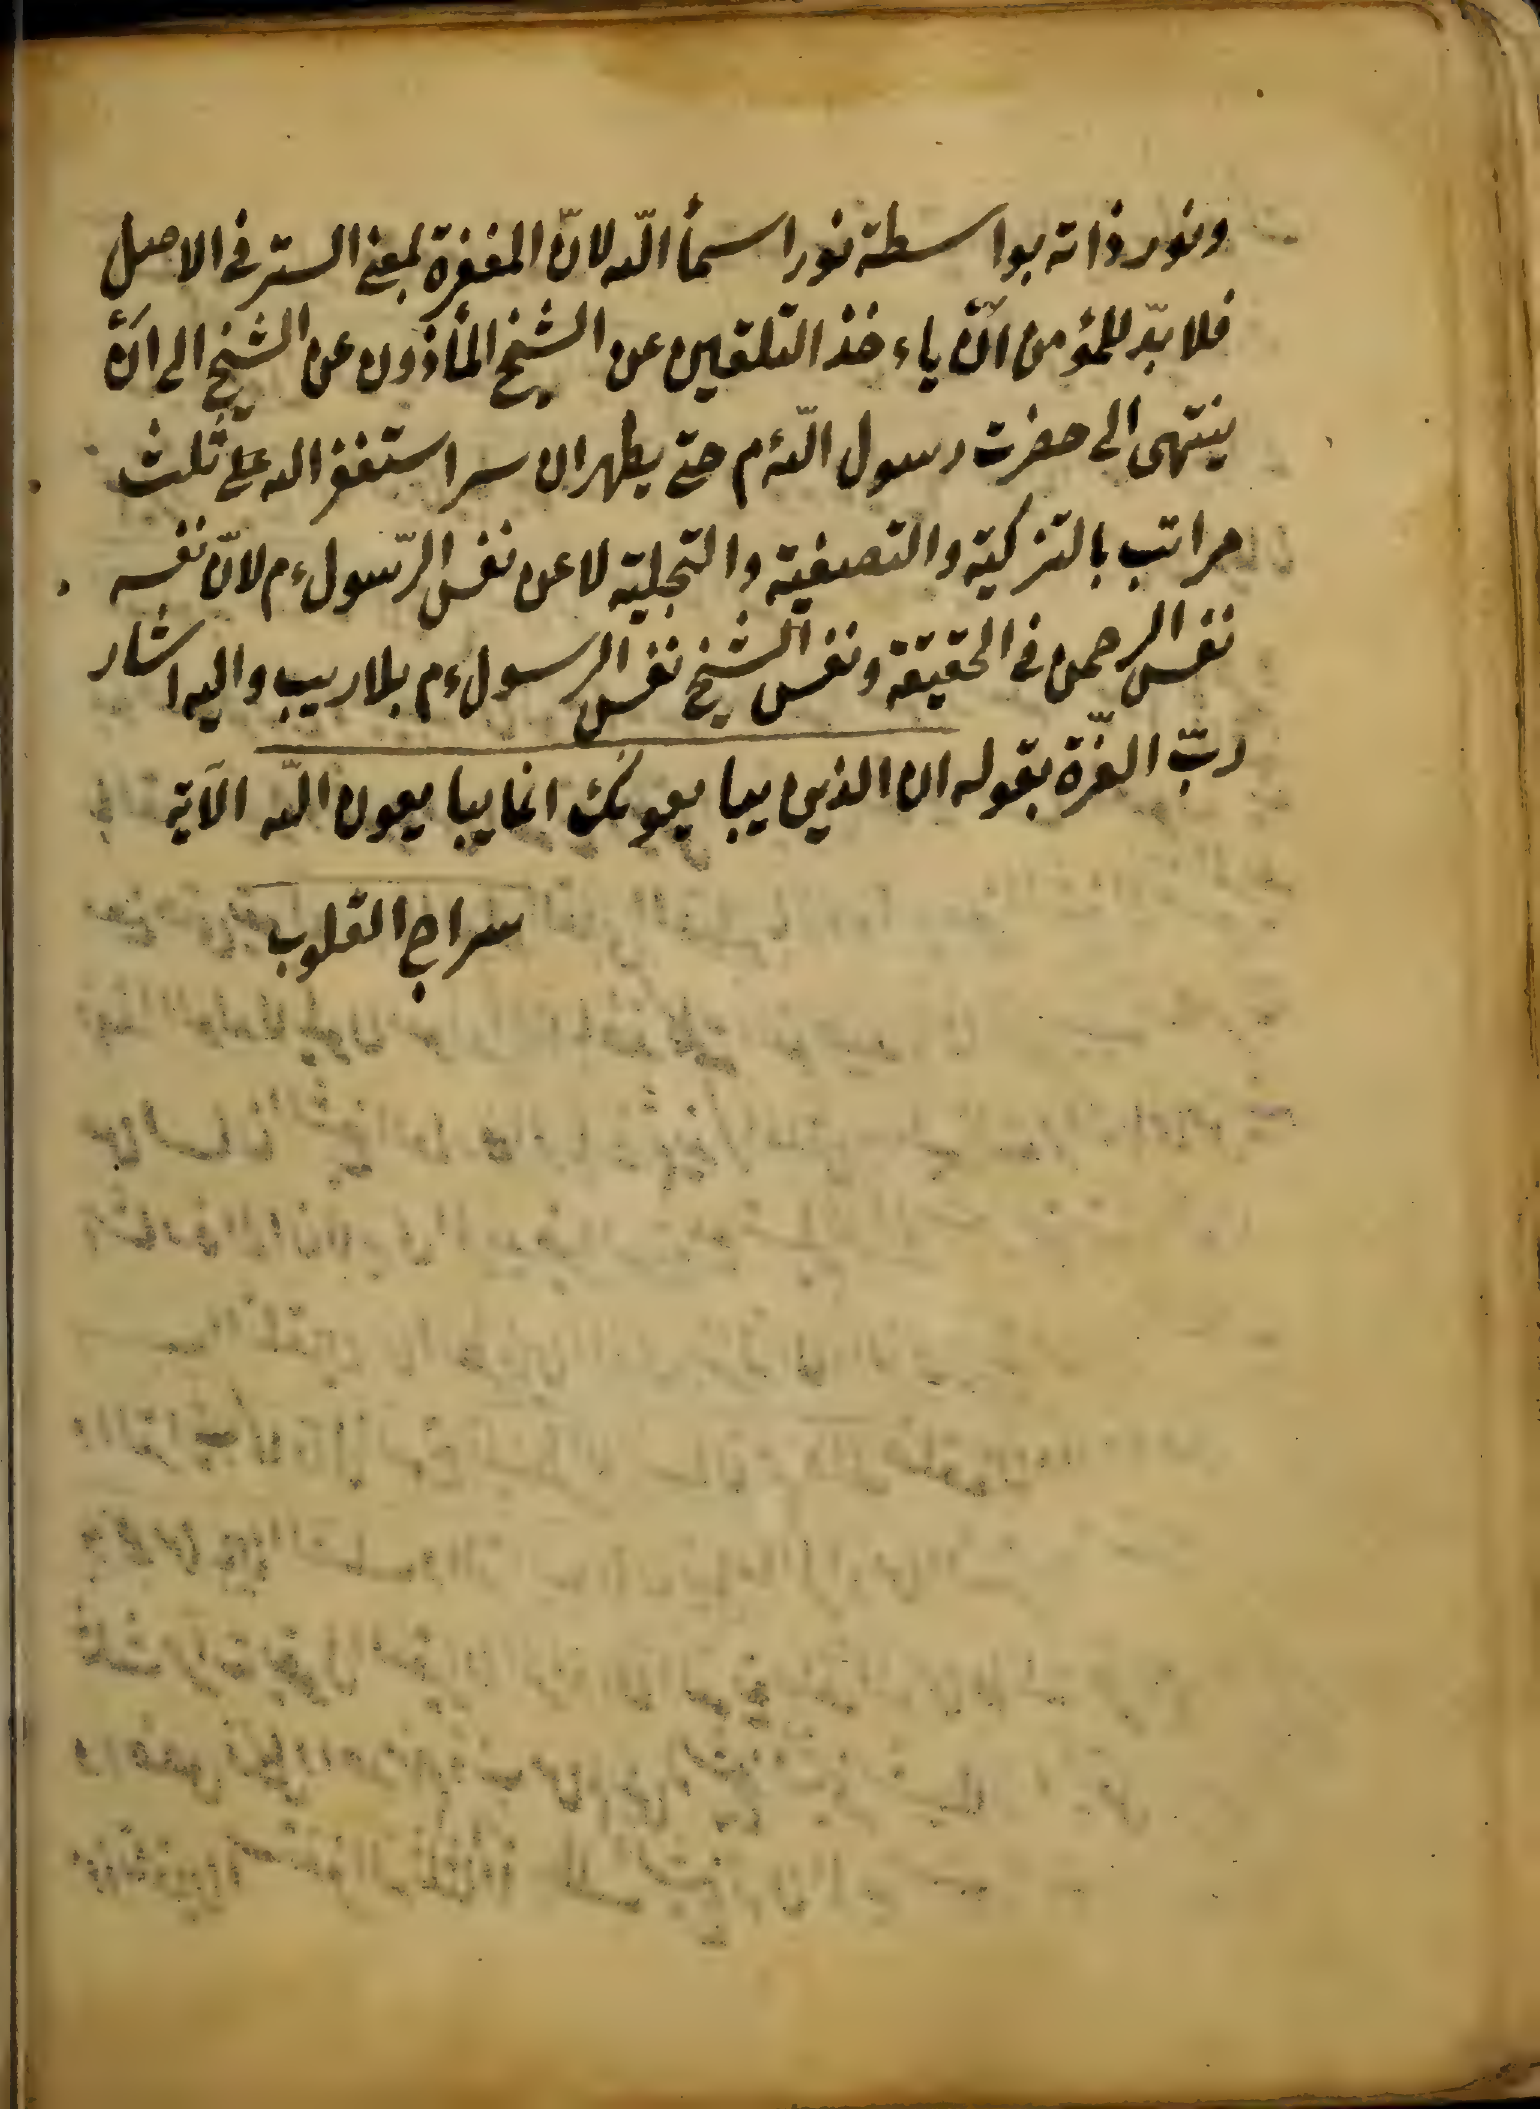 ونور ذاته بواسطة نور اسمأ اللّه لانّ المغفرة لمعنى الستر فى الاصل
فلا بدّ للمؤمن انّ ياءخذ التلقين عن الشيخ المأذون عن الشيخ الى انّ
ينتهى الى حضرت رسول اللّه ءم حتى يظهر ان سر استغفر الله على ثلث
مراتب بالتزكية والتصفية والتجلية لا عن نفس الرّسول ءم لانّ نفسه
نفس الرحمن فى الحقيقة ونفس الشيخ نفس الرسول ءم بلا ريب واليه اشار
ربّ العزّة بقوله ان الذين يبايعونك انما يبايعون اللّه الآية
سراج القلوب